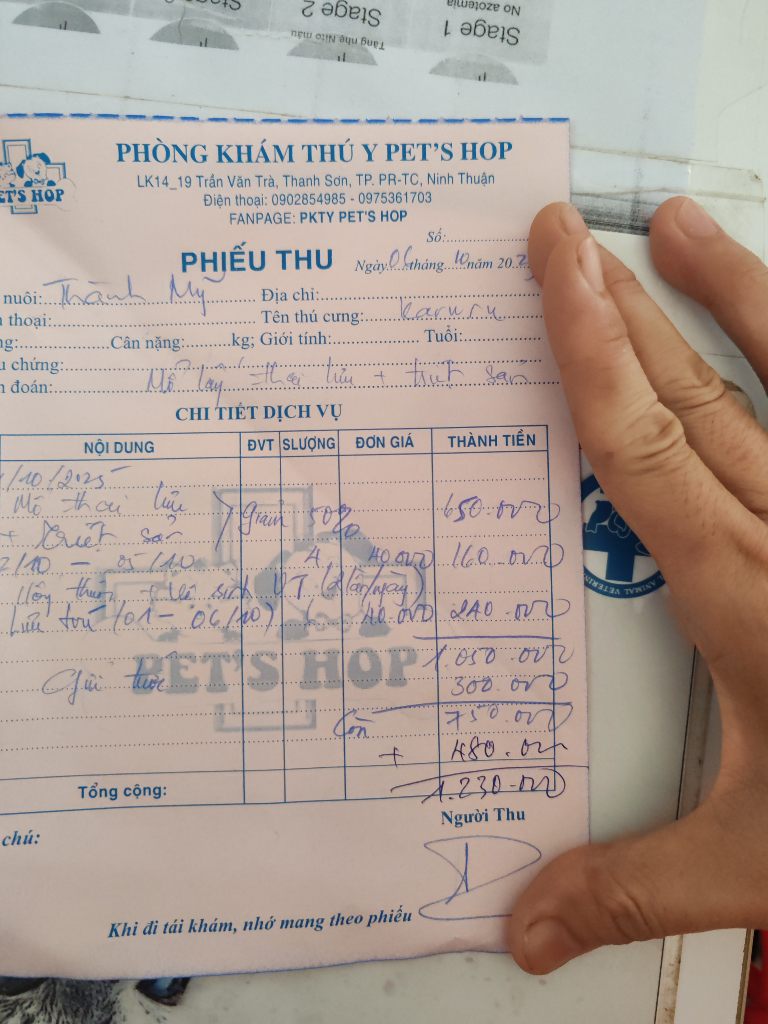 Stage 1
No azotemia
Stage 2
Tăng nhẹ Nitơ máu
PET'S HOP
PHÒNG KHÁM THÚ Y PET'S HOP
LK14_19 Trần Văn Trà, Thanh Sơn, TP. PR-TC, Ninh Thuận
Điện thoại: 0902854985 - 0975361703
FANPAGE: PKTY PET'S HOP
Số:
PHIẾU THU
Ngày 06 tháng 10 năm 20
nuôi: Thành Mỹ Địa chỉ:
thoại: Tên thú cưng: Karuru
Cân nặng: kg; Giới tính: Tuổi:
chứng:
đoán: Mổ lấy thai lưu + triệt sản
CHI TIẾT DỊCH VỤ
NỘI DUNG ĐVT SLƯỢNG ĐƠN GIÁ THÀNH TIỀN
/10/2025
Mổ thai lưu
+ triệt sản giảm 50% 650.000
2/10 - 05/10 4 40.000 160.000
VT (2 lần/ngày)
Lưu trú (01 - 06/10) 6 40.000 240.000
1.050.000
300.000
PET'S HOP
Còn 750.000
+ 480.000
Tổng cộng: 1.230.000
Người Thu
chú:
Khi đi tái khám, nhớ mang theo phiếu